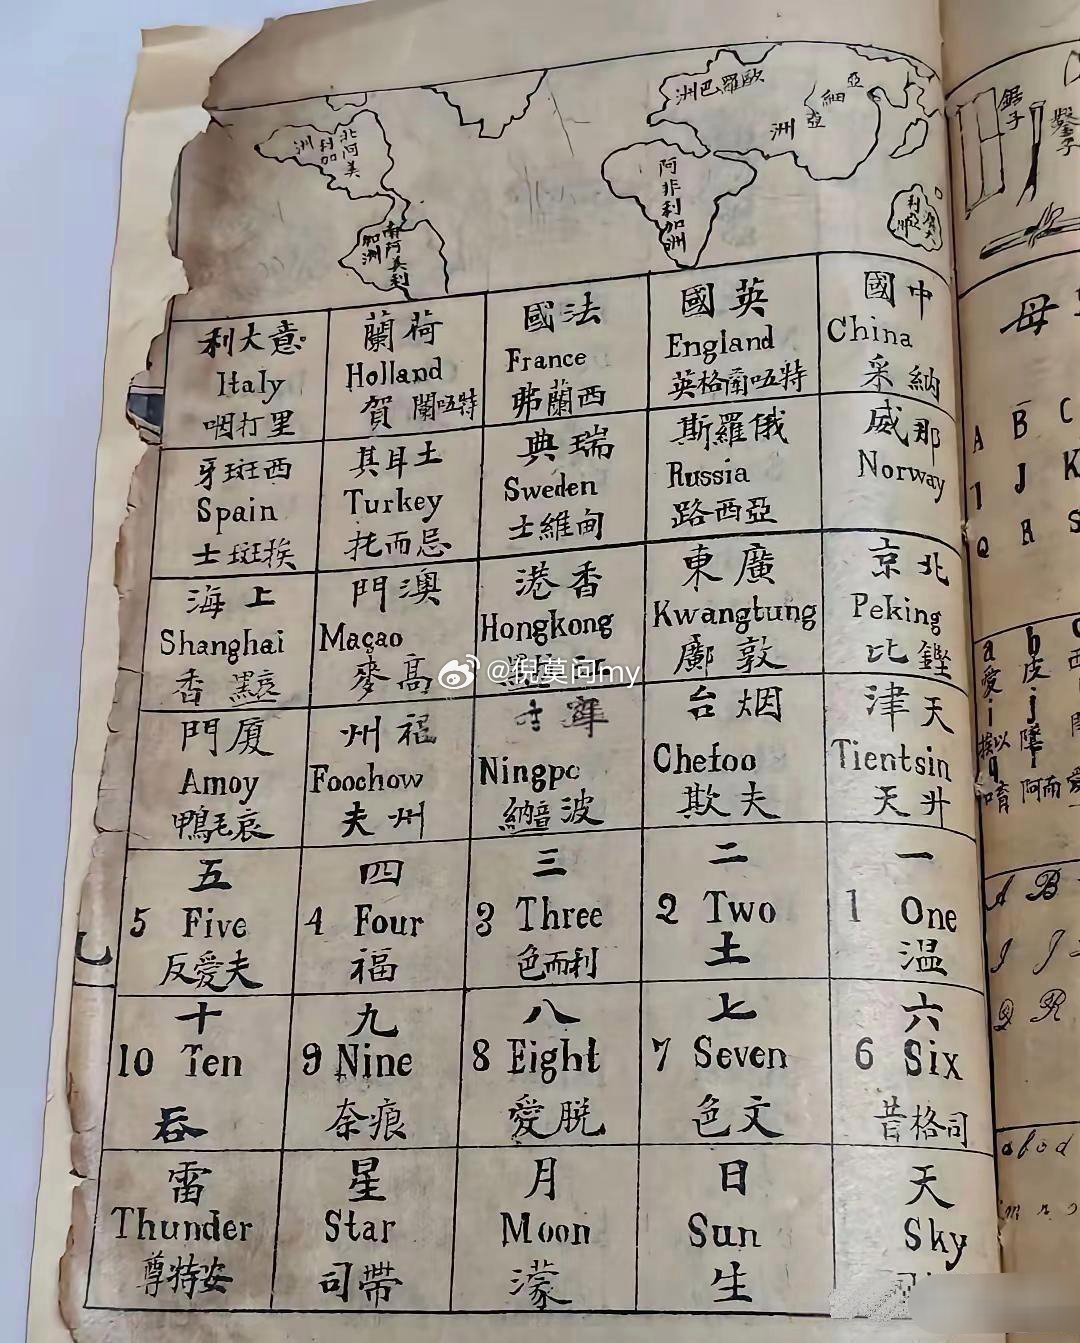 歐羅巴洲
亞細亞
洲
北阿美
利加
洲
南阿美利
加洲
阿非利加洲
利亞
洲
鋸子
鑿子
中國
China
采納
英國
England
英格蘭唔特
法國
France
弗蘭西
荷蘭
Holland
賀蘭唔特
意大利
Italy
咽打里
那威
Norway
俄羅斯
Russia
路西亞
瑞典
Sweden
士維甸
土耳其
Turkey
托而忌
西班牙
Spain
士班挨
北京
Peking
比鏗
廣東
Kwangtung
鄺敦
香港
Hongkong
澳門
Maçao
麥高
上海
Shanghai
香
天津
Tientsin
天升
烟台
Chefoo
欺夫
Ningpo
波
福州
Foochow
夫州
廈門
Amoy
鴨毛哀
一
1 One
温
二
2 Two
土
三
3 Three
色而利
四
4 Four
福
五
5 Five
反愛夫
六
6 Six
昔格司
七
7 Seven
色文
八
8 Eight
愛脱
九
9 Nine
奈痕
十
10 Ten
吞
天
Sky
日
Sun
生
月
Moon
濛
星
Star
司帶
雷
Thunder
尊特安
母
A B C
J K
Q R S
a b
愛 皮
i j
挨以
q
A B
I J
Q R
@倪莫问my